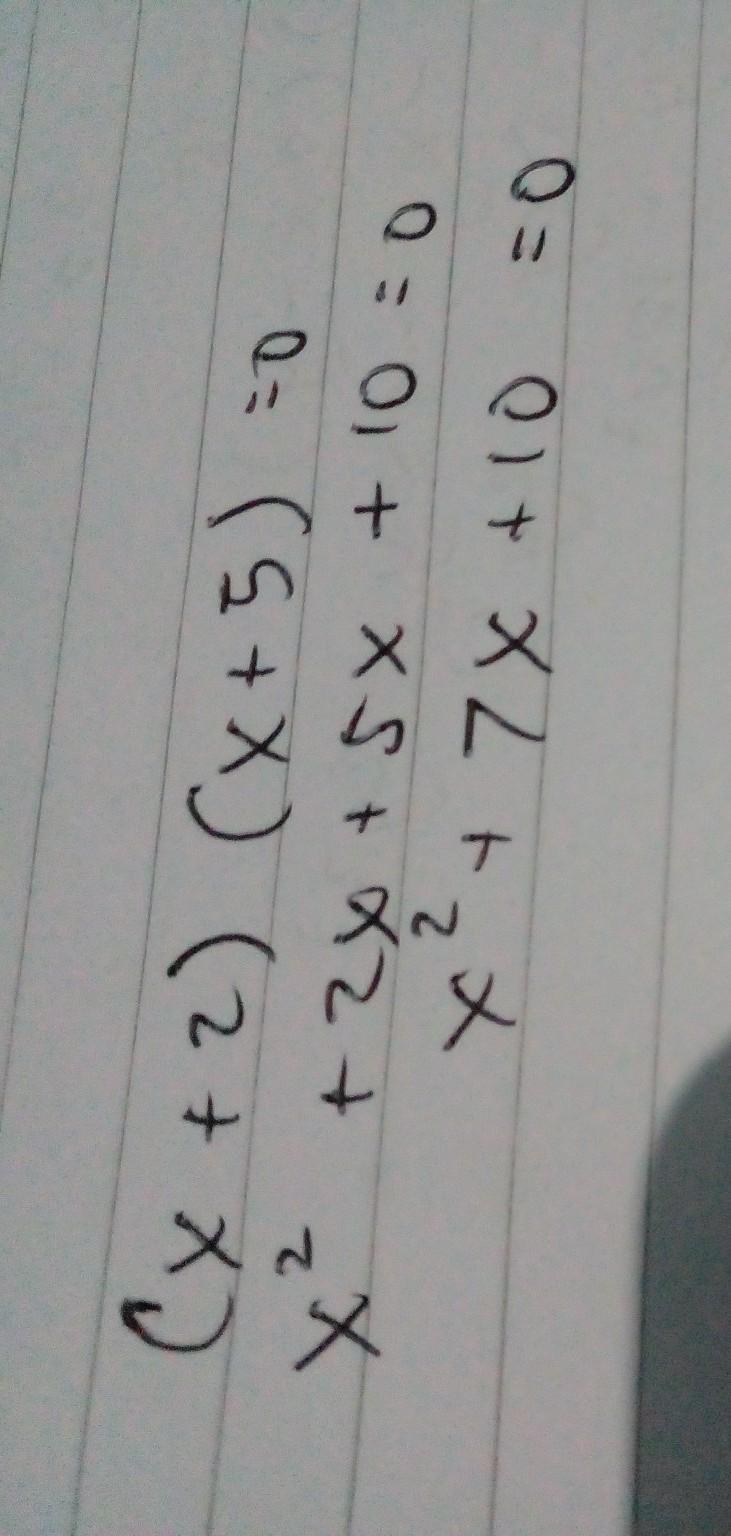 (x + 2) (x + 5) = 0
x² + 2x + 5x + 10 = 0
x² + 7x + 10 = 0